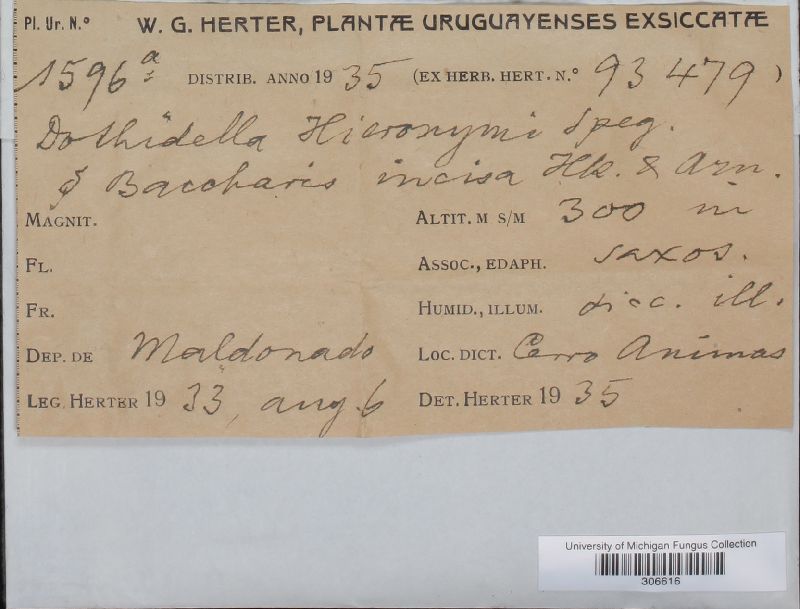 Pl. Ur. N.º W. G. HERTER, PLANTÆ URUGUAYENSES EXSICCATÆ
1596a DISTRIB. ANNO 1935 (EX HERB. HERT. N.º 93479)
Dothidella Hieronymi Speg.
Baccharis incisa Hk. & Arn.
MAGNIT. ALTIT. M S/M 300 m
FL. ASSOC., EDAPH. saxos.
FR. HUMID., ILLUM. sicc. ill.
DEP. DE Maldonado LOC. DICT. Cerro Animas
LEG. HERTER 1933, aug. 6 DET. HERTER 1935
University of Michigan Fungus Collection
306616